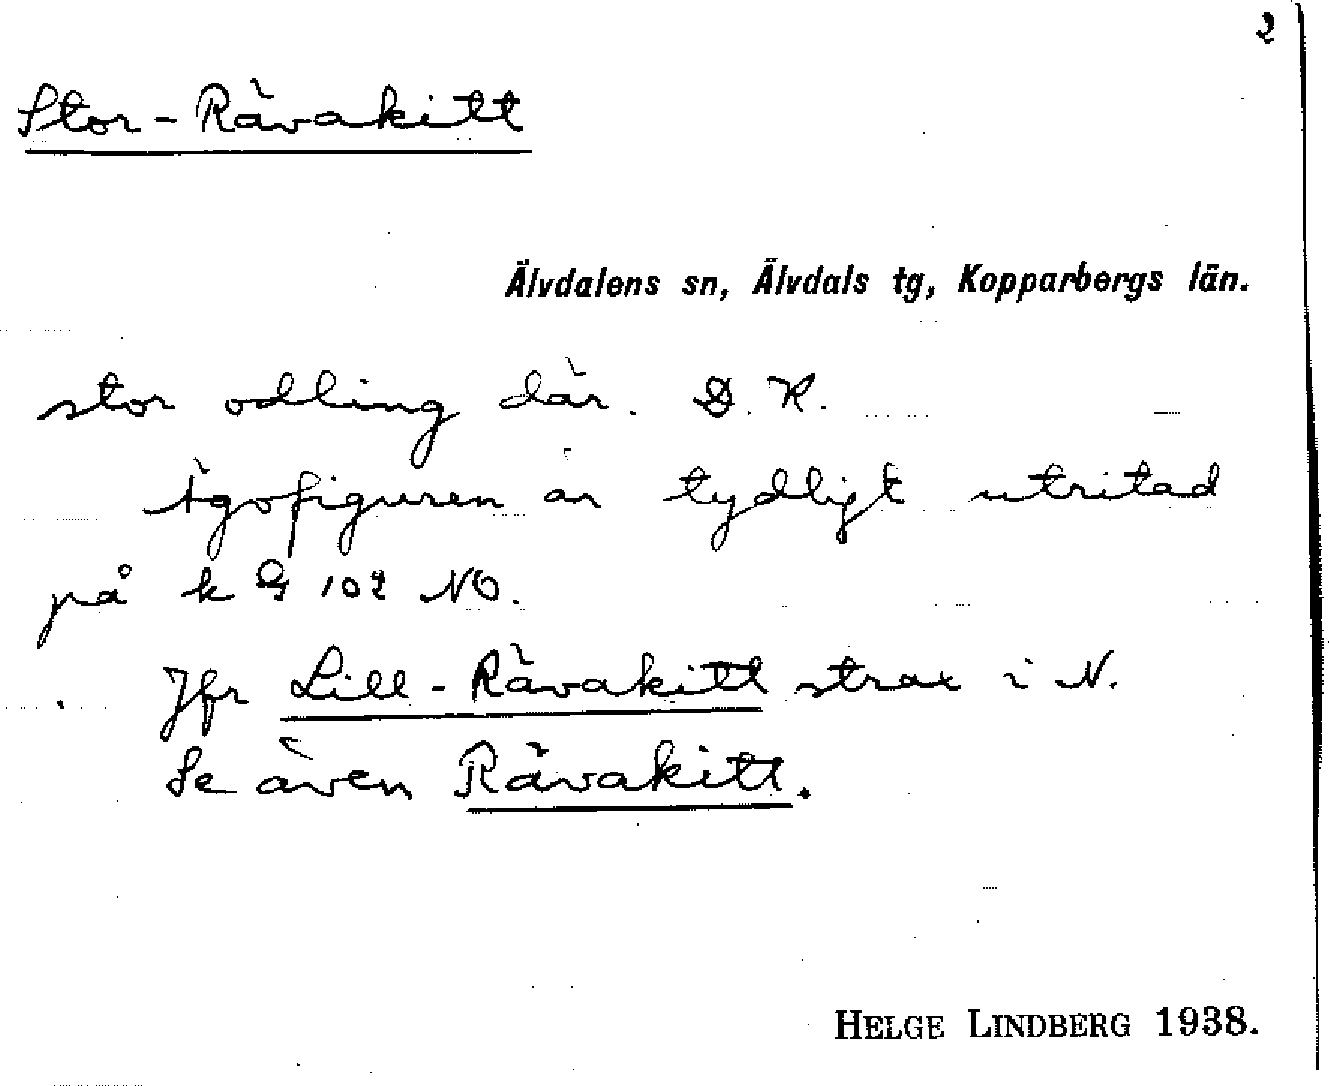 2
Stor-Rävakitt
Älvdalens sn, Älvdals tg, Kopparbergs län.
stor odling där. D. K.
Ägofiguren är tydligt utritad
på k G 102 NO.
Jfr Lill-Rävakitt strax i N.
Se även Rävakitt.
HELGE LINDBERG 1938.